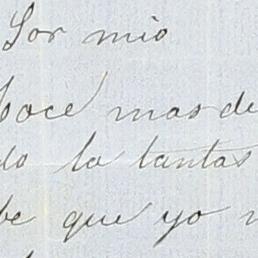 Sor mio
hace mas de
do la tantas
be que yo